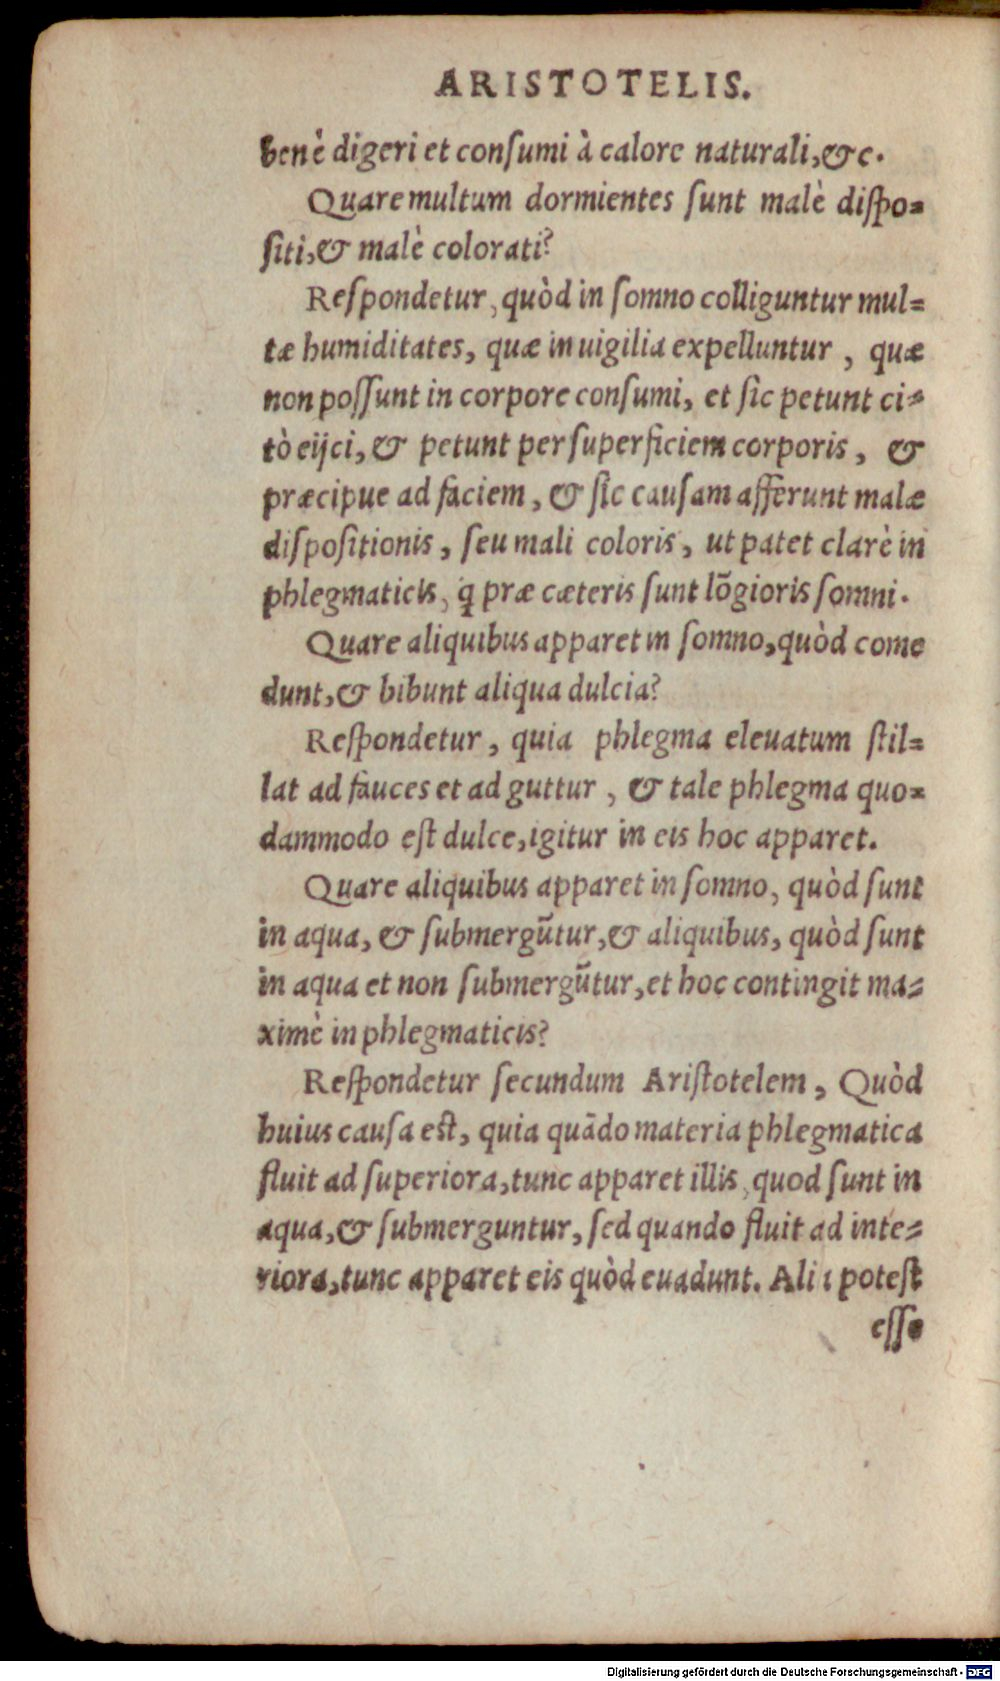 ARISTOTELIS.
benè digeri et conſumi à calore naturali,&c.
Quare multum dormientes ſunt malè diſpo=
ſiti,& malè colorati?
Reſpondetur, quòd in ſomno colliguntur mul=
tæ humiditates, quæ in uigilia expelluntur, quæ
non poſſunt in corpore conſumi, et ſic petunt ci=
tò eijci, & petunt per ſuperficiem corporis, &
præcipue ad faciem, & ſic cauſam afferunt malæ
diſpoſitionis, ſeu mali coloris, ut patet clarè in
phlegmaticis, q̨ præ cæteris ſunt lōgioris ſomni.
Quare aliquibus apparet in ſomno, quòd come
dunt,& bibunt aliqua dulcia?
Reſpondetur, quia phlegma eleuatum ſtil=
lat ad fauces et ad guttur, & tale phlegma quo=
dammodo eſt dulce, igitur in eis hoc apparet.
Quare aliquibus apparet in ſomno, quòd ſunt
in aqua, & ſubmergūtur,& aliquibus, quòd ſunt
in aqua et non ſubmergūtur, et hoc contingit ma=
ximè in phlegmaticis?
Reſpondetur ſecundum Ariſtotelem, Quòd
huius cauſa eſt, quia quādo materia phlegmatica
fluit ad ſuperiora, tunc apparet illis, quod ſunt in
aqua,& ſubmerguntur, ſed quando fluit ad inte=
riora, tunc apparet eis quòd euadunt. Ali ı poteſt
eſſe
Digitalisierung gefördert durch die Deutsche Forschungsgemeinschaft - DFG